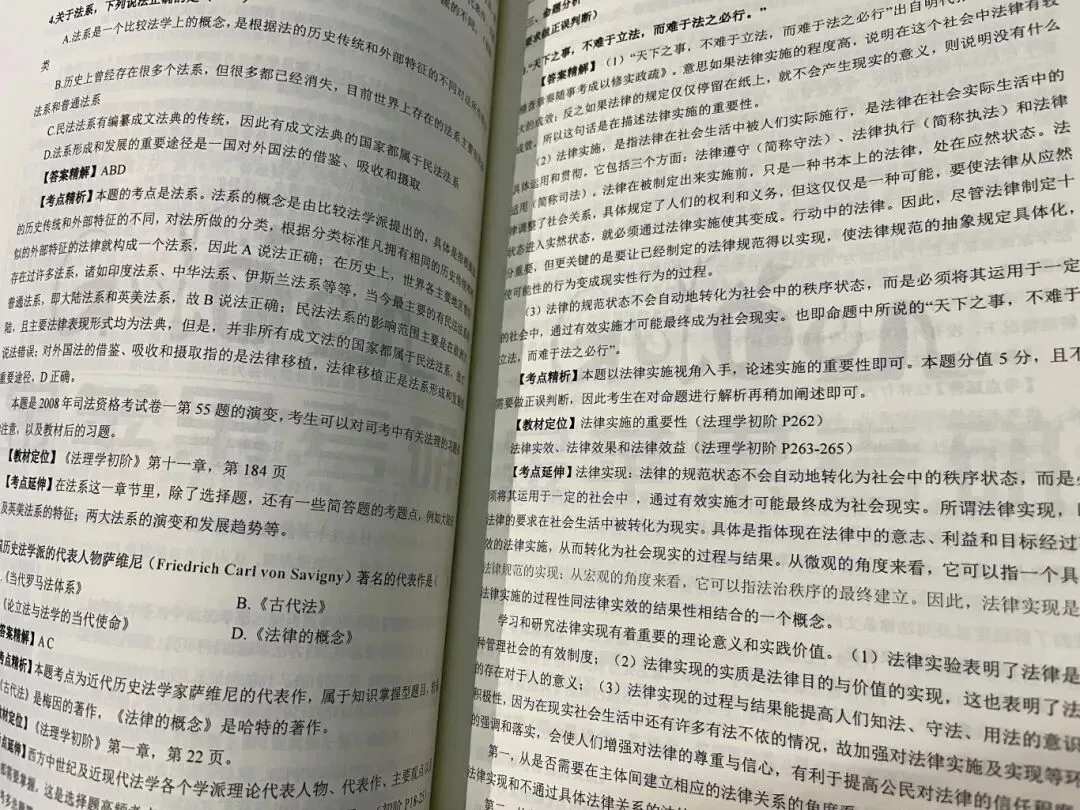 4.关于法系，下列说法正确的是
A.法系是一个比较法学上的概念，是根据法的历史传统和外部特征的不同对法所作
类
B.历史上曾经存在很多个法系，但很多都已经消失，目前世界上存在的法系主要
法系和普通法系
C.民法法系有编纂成文法典的传统，因此有成文法典的国家都属于民法法系
D.法系形成和发展的重要途径是一国对外国法的借鉴、吸收和摄取
【答案精解】ABD
【考点精析】本题的考点是法系。法系的概念是由比较法学派提出的，具体是
的历史传统和外部特征的不同，对法所做的分类，根据分类标准凡拥有相同的历史传统
似的外部特征的法律就构成一个法系，因此 A 说法正确；在历史上，世界各主要地区
存在过许多法系，诸如印度法系、中华法系、伊斯兰法系等等，当今最主要的有民法法系
普通法系，即大陆法系和英美法系，故 B 说法正确；民法法系的影响范围主要是在欧洲
陆，且主要法律表现形式均为法典，但是，并非所有成文法的国家都属于民法法系，故 C
说法错误；对外国法的借鉴、吸收和摄取指的是法律移植，法律移植正是法系形成和发展的
重要途径，D 正确。
本题是 2008 年司法资格考试卷一第 55 题的演变，考生可以对司考中有关法理的习题
注意，以及教材后的习题。
【教材定位】《法理学初阶》第十一章，第 184 页
【考点延伸】在法系这一章节里，除了选择题，还有一些简答题的考题点，例如大陆
及英美法系的特征；两大法系的演变和发展趋势等。
历史法学派的代表人物萨维尼（Friedrich Carl von Savigny）著名的代表作是（
《当代罗马法体系》
B.《古代法》
《论立法与法学的当代使命》
D.《法律的概念》
答案精解】AC
考点精析】本题考点为近代历史法学家萨维尼的代表作，属于知识掌握型题目，
《古代法》是梅因的著作，《法律的概念》是哈特的著作。
材定位】《法理学初阶》第一章，第 22 页。
点延伸】西方中世纪及近现代法学各个学派理论代表人物、代表作、主要观点
部需要掌握，这是选择题高频考
初阶 P18-25
三、命题分析
要求做正误判断）
“天下之事，不难于立法，而难于法之必行。”
【答案精解】（1）“天下之事，不难于立法，而难于法之必行”出自明代
稽查章奏随事考成以修实政疏》。意思如果法律实施的程度高，说明在这个社会中法律有较
大的成效；反之如果法律的规定仅仅停留在纸上，就不会产生现实的意义，则说明没有什么
成效。所以这句话是在描述法律实施的重要性。
（2）法律实施，是指法律在社会生活中被人们实际施行，是法律在社会实际生活中的
具体运用和贯彻。它包括三个方面：法律遵守（简称守法）、法律执行（简称执法）和法律
适用（简称司法）。法律在被制定出来实施前，只是一种书本上的法律，处在应然状态。法
律调整了社会关系，具体规定了人们的权利和义务，但这仅仅是一种可能，要使法律从应然
状态进入实然状态，就必须通过法律实施使其变成。行动中的法律。因此，尽管法律制定十
分重要，但更关键的是要让已经制定的法律规范得以实现，使法律规范的抽象规定具体化，
使可能性的行为变成现实性行为的过程。
（3）法律的规范状态不会自动地转化为社会中的秩序状态，而是必须将其运用于一定
的社会中，通过有效实施才可能最终成为社会现实。也即命题中所说的“天下之事，不难于
立法，而难于法之必行”。
【考点精析】本题以法律实施视角入手，论述实施的重要性即可。本题分值 5 分，且不
需要做正误判断，因此考生在对命题进行解析再稍加阐述即可。
【教材定位】法律实施的重要性（法理学初阶 P262）
法律实效、法律效果和法律效益（法理学初阶 P263-265）
【考点延伸】法律实现：法律的规范状态不会自动地转化为社会中的秩序状态，而是
须将其运用于一定的社会中，通过有效实施才可能最终成为社会现实。所谓法律实现，
法律的要求在社会生活中被转化为现实。具体是指体现在法律中的意志、利益和目标经过
效的法律实施，从而转化为社会现实的过程与结果。从微观的角度来看，它可以指一个具
法律规范的实现；从宏观的角度来看，它可以指法治秩序的最终建立。因此，法律实现是
法律实施的过程性同法律实效的结果性相结合的一个概念。
学习和研究法律实现有着重要的理论意义和实践价值。（1）法律实验表明了法律是
种管理社会的有效制度；（2）法律实现的实质是法律目的与价值的实现，这也表明了法
的存在对于人的意义；（3）法律实现的过程与结果能提高人们知法、守法、用法的意识
积极性，因为在现实社会生活中还有许多有法不依的情况，故加强对法律实施及实现等环
的强调和落实，会使人们增强对法律的尊重与信心，有利于提高公民对法律的信任
第一，从是否需要在主体间建立相应的法律关系的角度看
法律实现和不通过具体法律关系的法